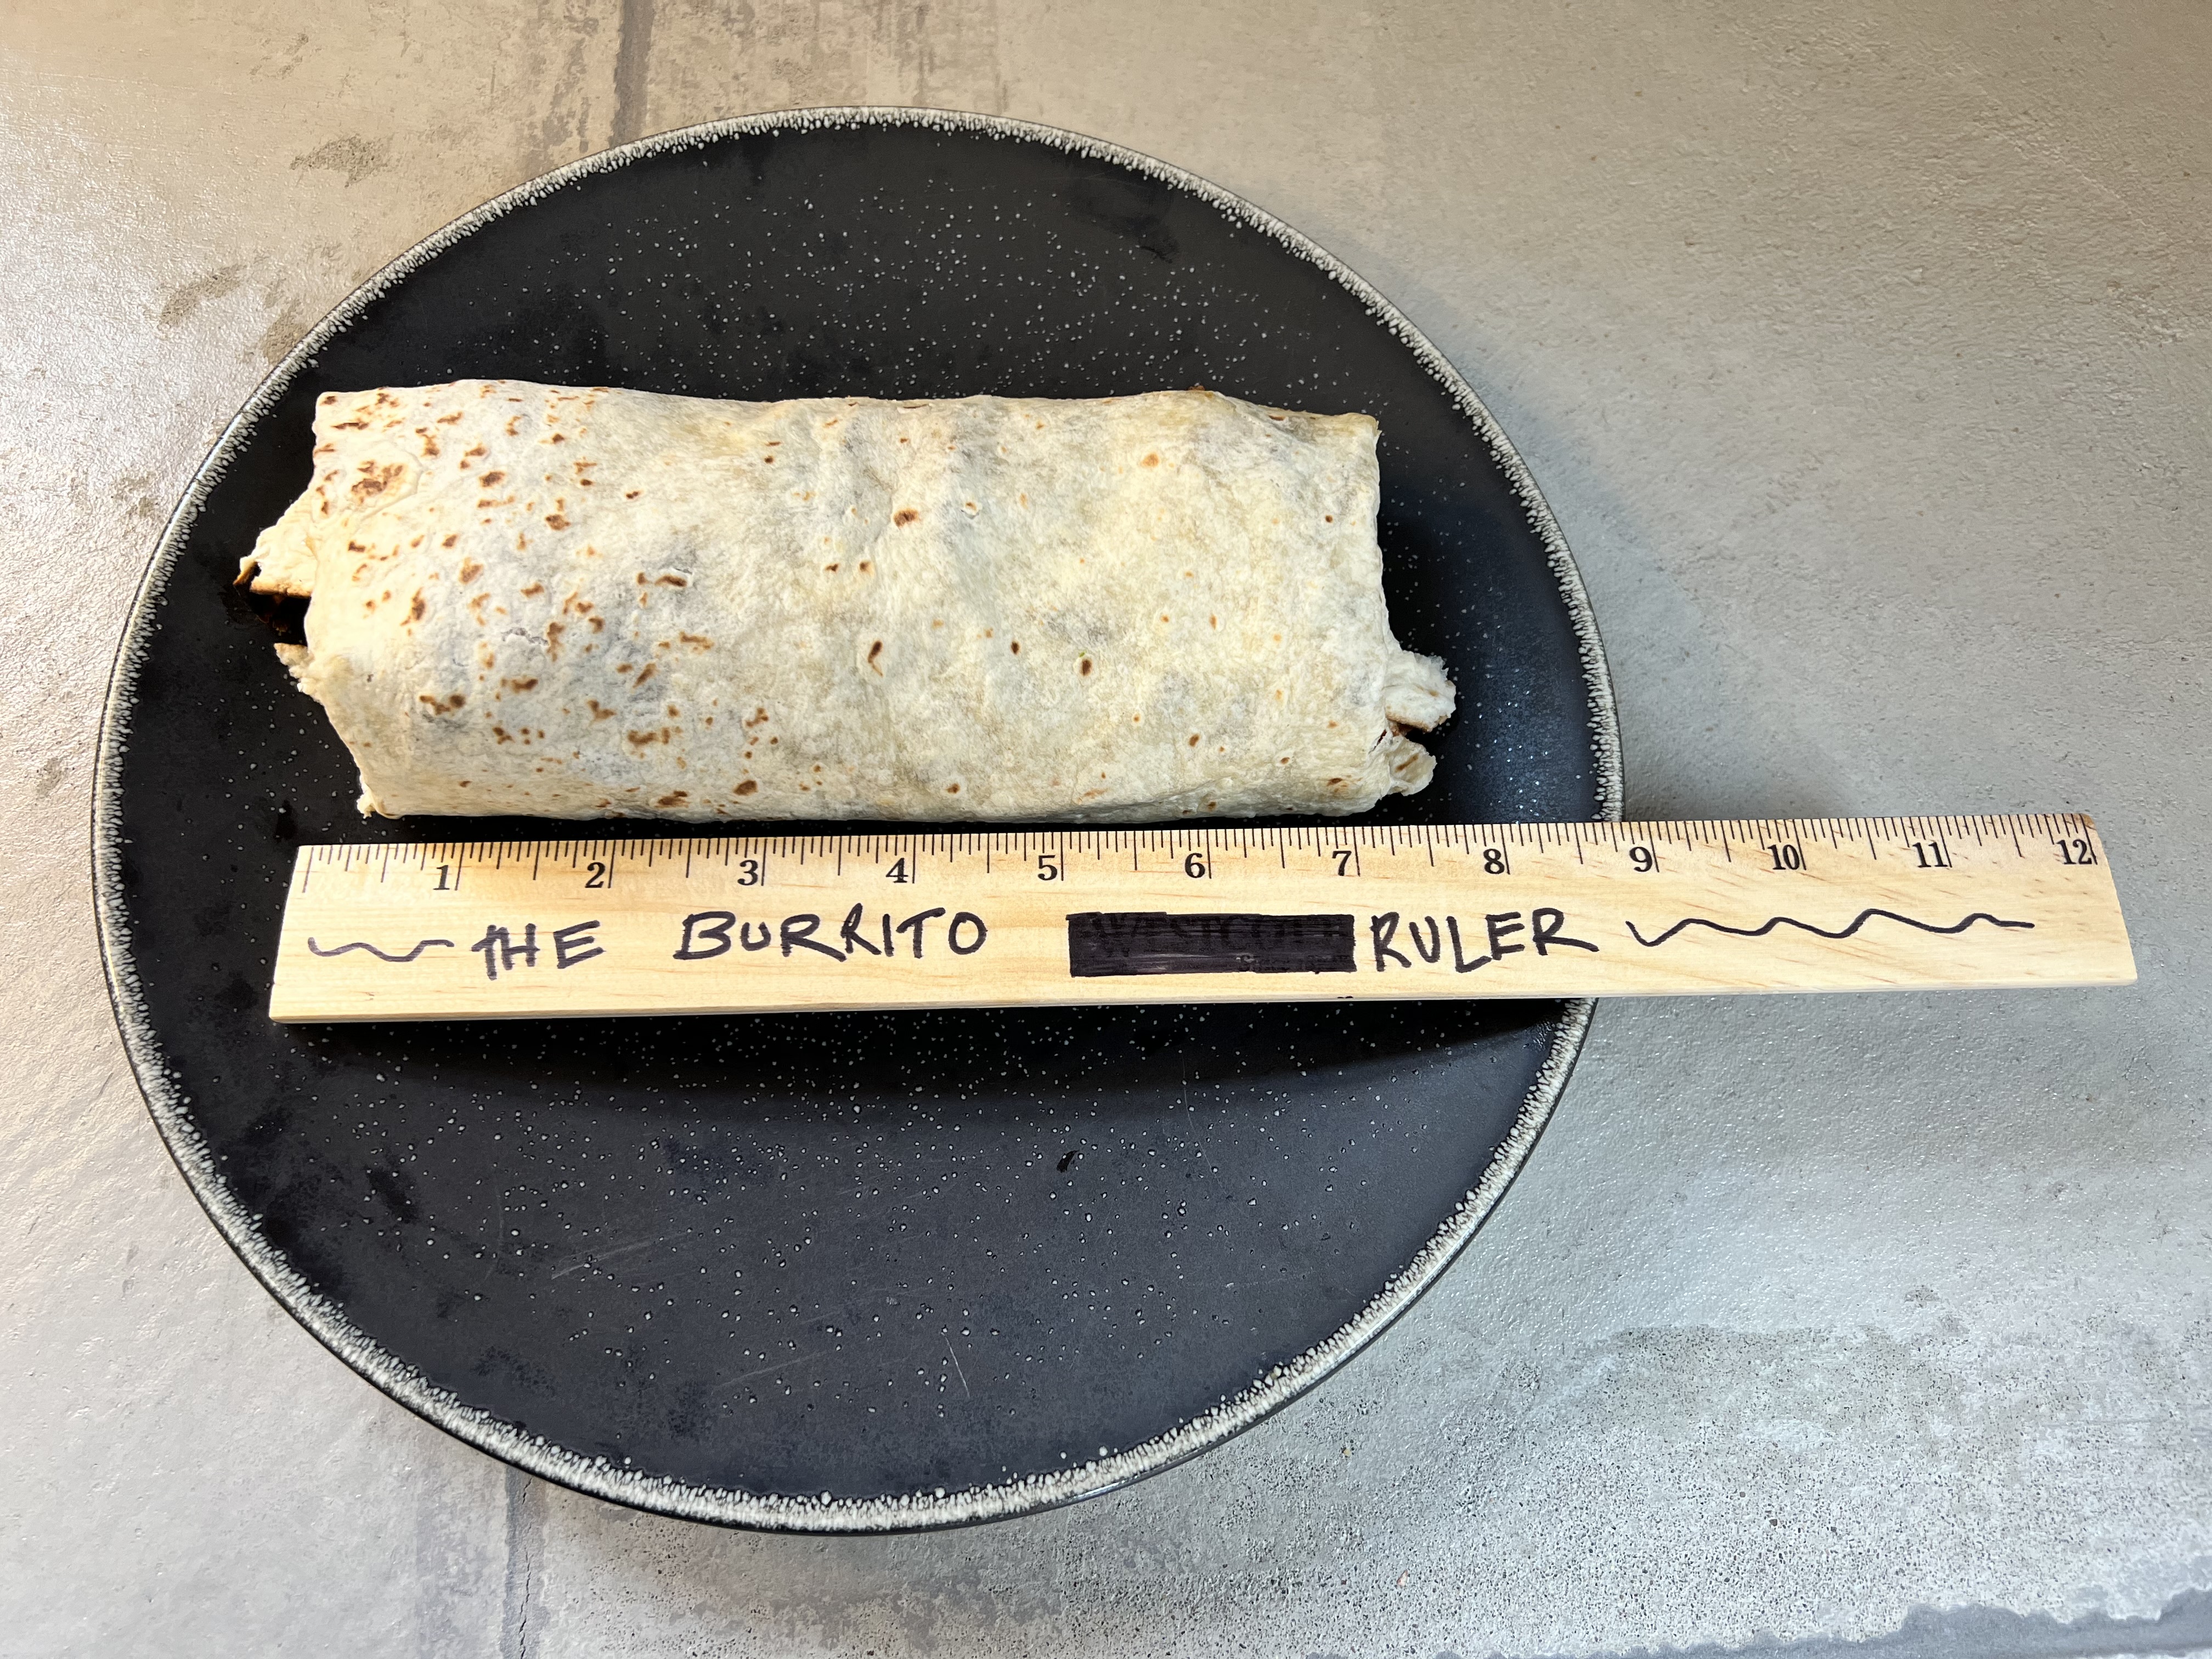 1 2 3 4 5 6 7 8 9 10 11 12
THE BURRITO RULER